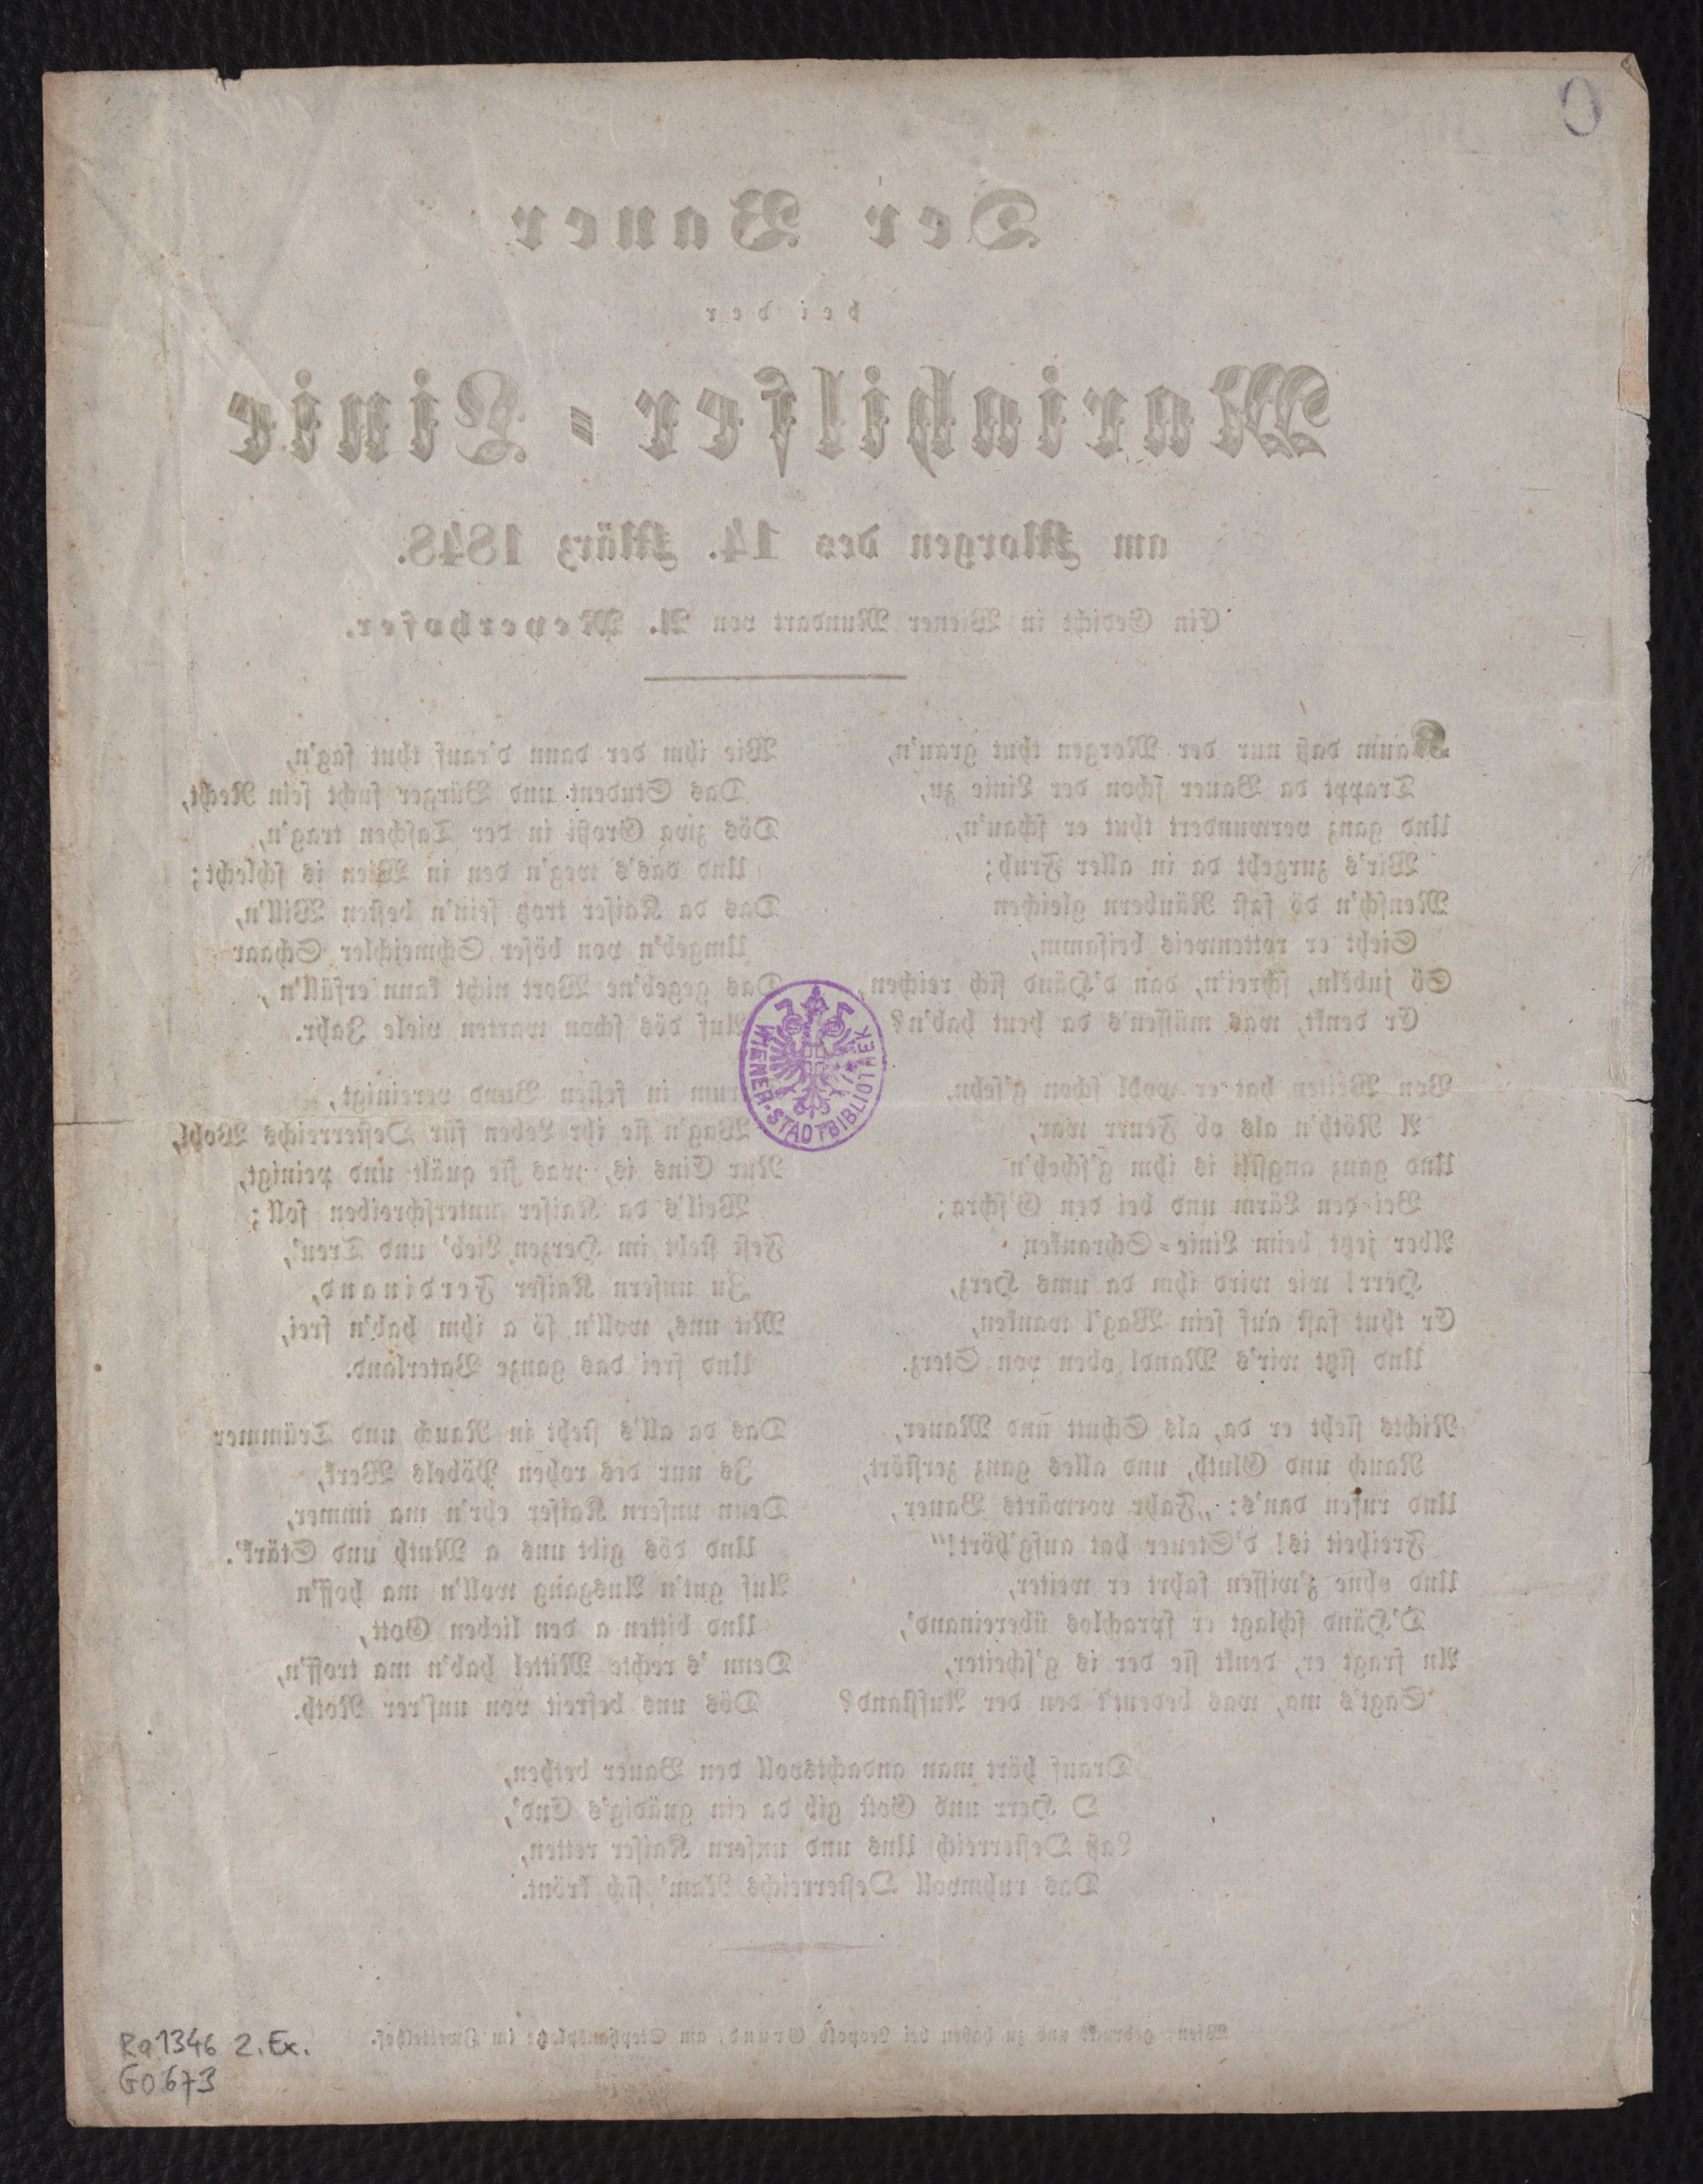 Der Bauer
bei der
Mariahilfer-Linie
am Morgen des 14. März 1848.
Ein Gedicht in Wiener Mundart von A. Meyerhofer.
Kaum daß nur der Morgen thut grau'n,
Trappt da Bauer schon der Linie zu,
Und ganz verwundert thut er schau'n,
Wir's zurgeht da in aller Fruh;
Mensch'n dö fast Räubern gleichen
Sieht er rottenweis beisamm,
Sö jubeln, schrei'n, dan d'Händ sich reichen,
Er denkt, was müssen's da heut hab'n?
Von Weiten hat er wohl schon g'sehn
A Röth'n als ob Feuer war,
Und ganz angstli is ihm g'scheh'n
Bei den Lärm und bei den G'schra;
Aber jetzt beim Linie-Schranken
Herr! wie wird ihm da ums Herz,
Er thut fast auf sein Wag'l wanken,
Und sitzt wir's Mandl oben von Sterz.
Nichts sieht er da, als Schutt und Mauer,
Rauch und Gluth, und alles ganz zerstört,
Und rufen dan's: „Fahr vorwärts Bauer,
Freiheit is! d'Steuer hat aufg'hört!“
Und ohne z'wissen fahrt er weiter,
D'Händ schlagt er sprachlos übereinand',
An fragt er, denkt sie der is g'scheiter,
Sagt's ma, was bedeut't den der Aufstand?
Wie ihm der dann d'rauf thut sag'n,
Das Student und Bürger sucht sein Recht,
Dös zwa Großi in der Taschen trag'n,
Und das's weg'n den in Wien is schlecht;
Das da Kaiser trotz sein'n besten Will'n,
Umgeb'n von böser Schmeichler Schaar
Das gegeb'ne Wort nicht kann erfüll'n,
Auf dös schon warten viele Jahr.
rum in festen Bund vereinigt,
Wag'n sie ihr Leben für Oesterreichs Wohl,
Nur Eins is, was sie quält und peinigt,
Weil's da Kaiser unterschreiben soll;
Fest steht im Herzen Lieb' und Treu',
Zu unsern Kaiser Ferdinand,
Mit uns, woll'n sö a ihm hab'n frei,
Und frei das ganze Vaterland.
Das da all's steht in Rauch und Trümmer
Is nur des rohen Pöbels Werk,
Denn unsern Kaiser ehr'n ma immer,
Und dös gibt uns a Muth und Stärk'.
Auf gut'n Ausgang woll'n ma hoff'n
Und bitten a den lieben Gott,
Denn 's rechte Mittel hab'n ma troff'n,
Dös uns befreit von uns'rer Noth.
Drauf hört man andachtsvoll den Bauer bethen,
O Herr und Gott gib da ein gnädig's End',
Laß Oesterreich Uns und unsern Kaiser retten,
Das ruhmvoll Oesterreichs Nam' sich krönt.
Wien, gedruckt und zu haben bei Leopold Grund, am Stephansplatz im Zwettelhof.
WIENER-STADTBIBLIOTHEK
Ra 1346 2. Ex.
G0673